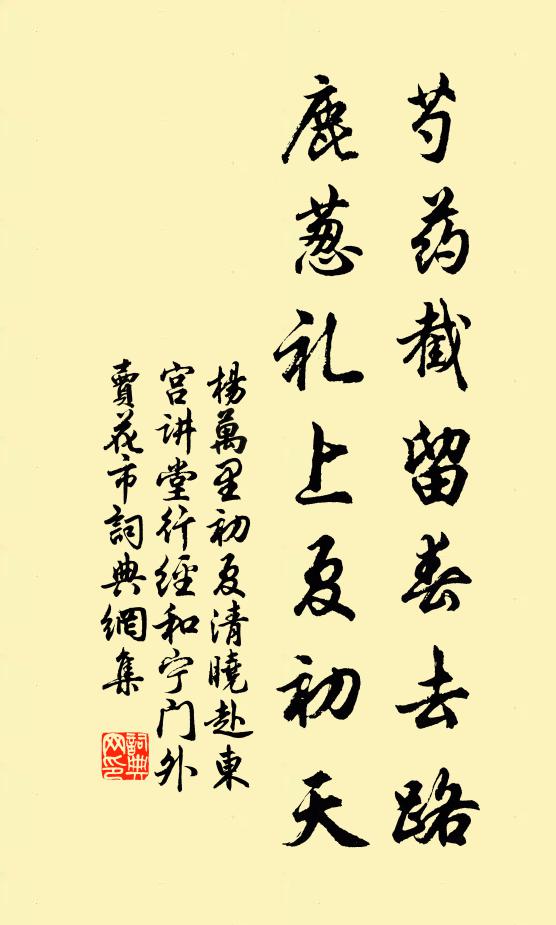 芍药截留春去路
鹿葱礼上夏初天
楊萬里初夏清曉赴東
宮讲堂行經和宁门外
賣花市詞典網集
詞典网印